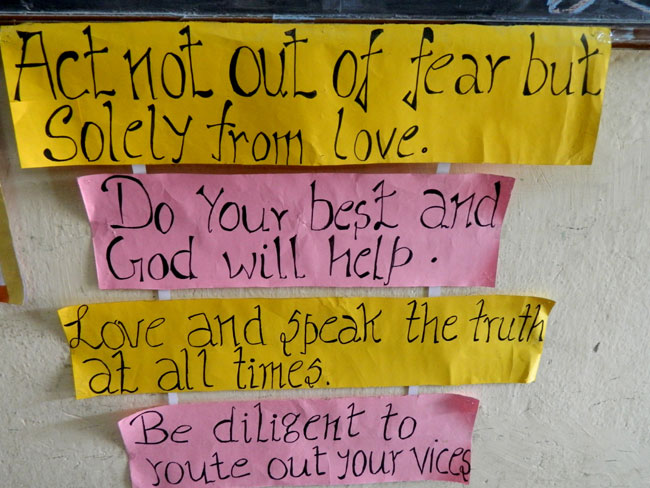 Act not out of fear but
Solely from love.
Do Your best and
God will help.
Love and speak the truth
at all times.
Be diligent to
route out your vices